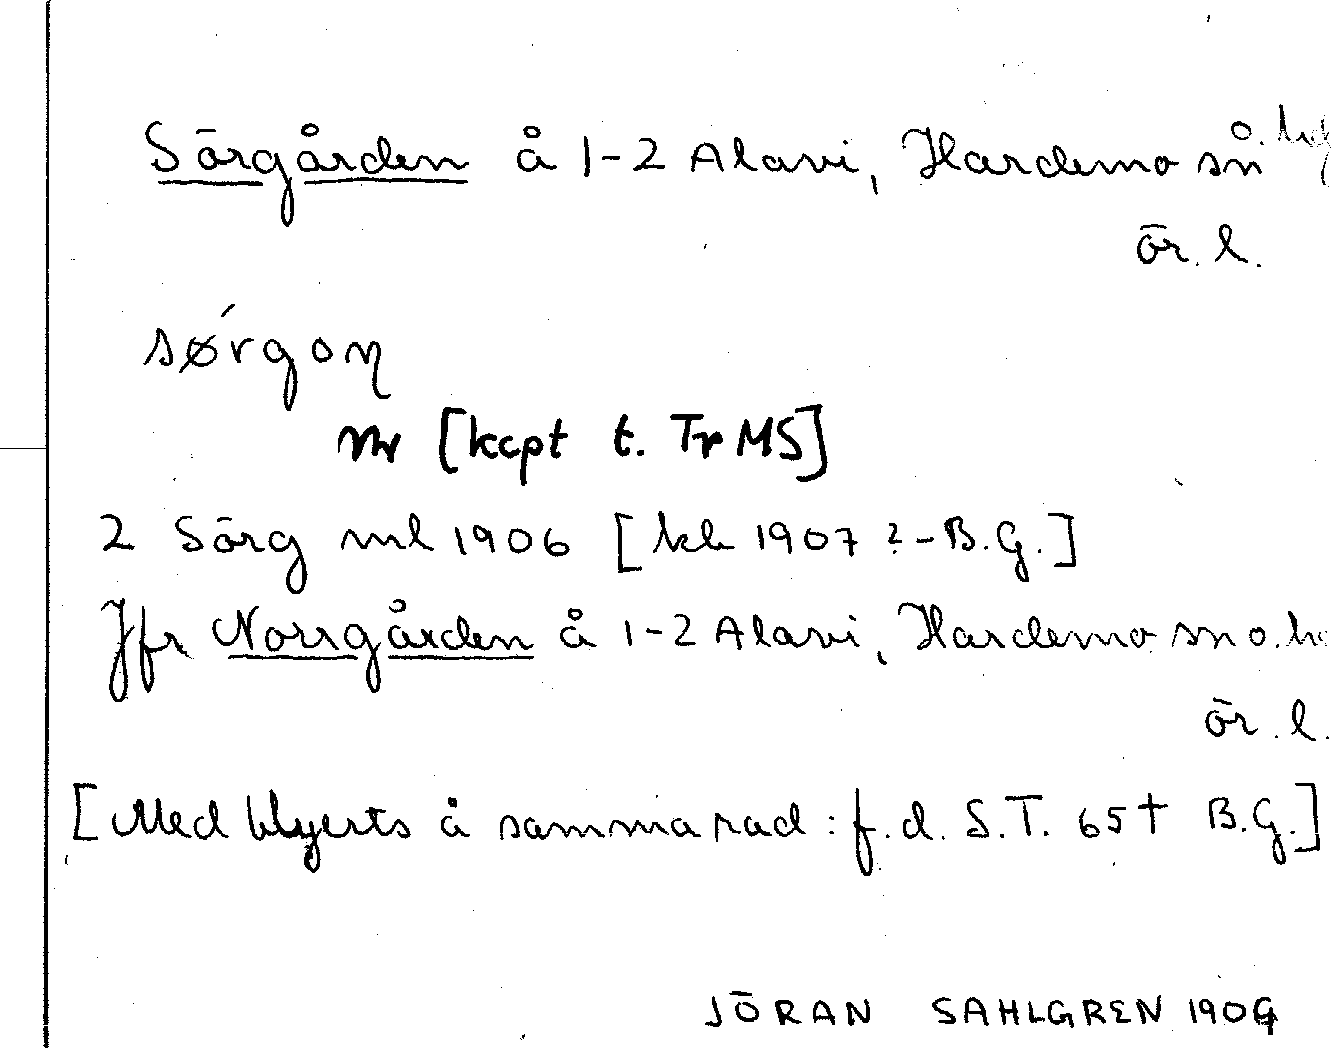 Sörgården å 1-2 Alavi, Hardemo sn o. hd
ör. l.
sǿrgoɳ
[kcpt t. Tr MS]
2 Sörg ml 1906 [kb 1907 ? - B.G.]
Jfr Norrgården å 1-2 Alavi, Hardemo sn o. h
ör. l.
[Med blyerts å samma rad : f.d. S.T. 65 † B.G.]
JÖRAN SAHLGREN 1909